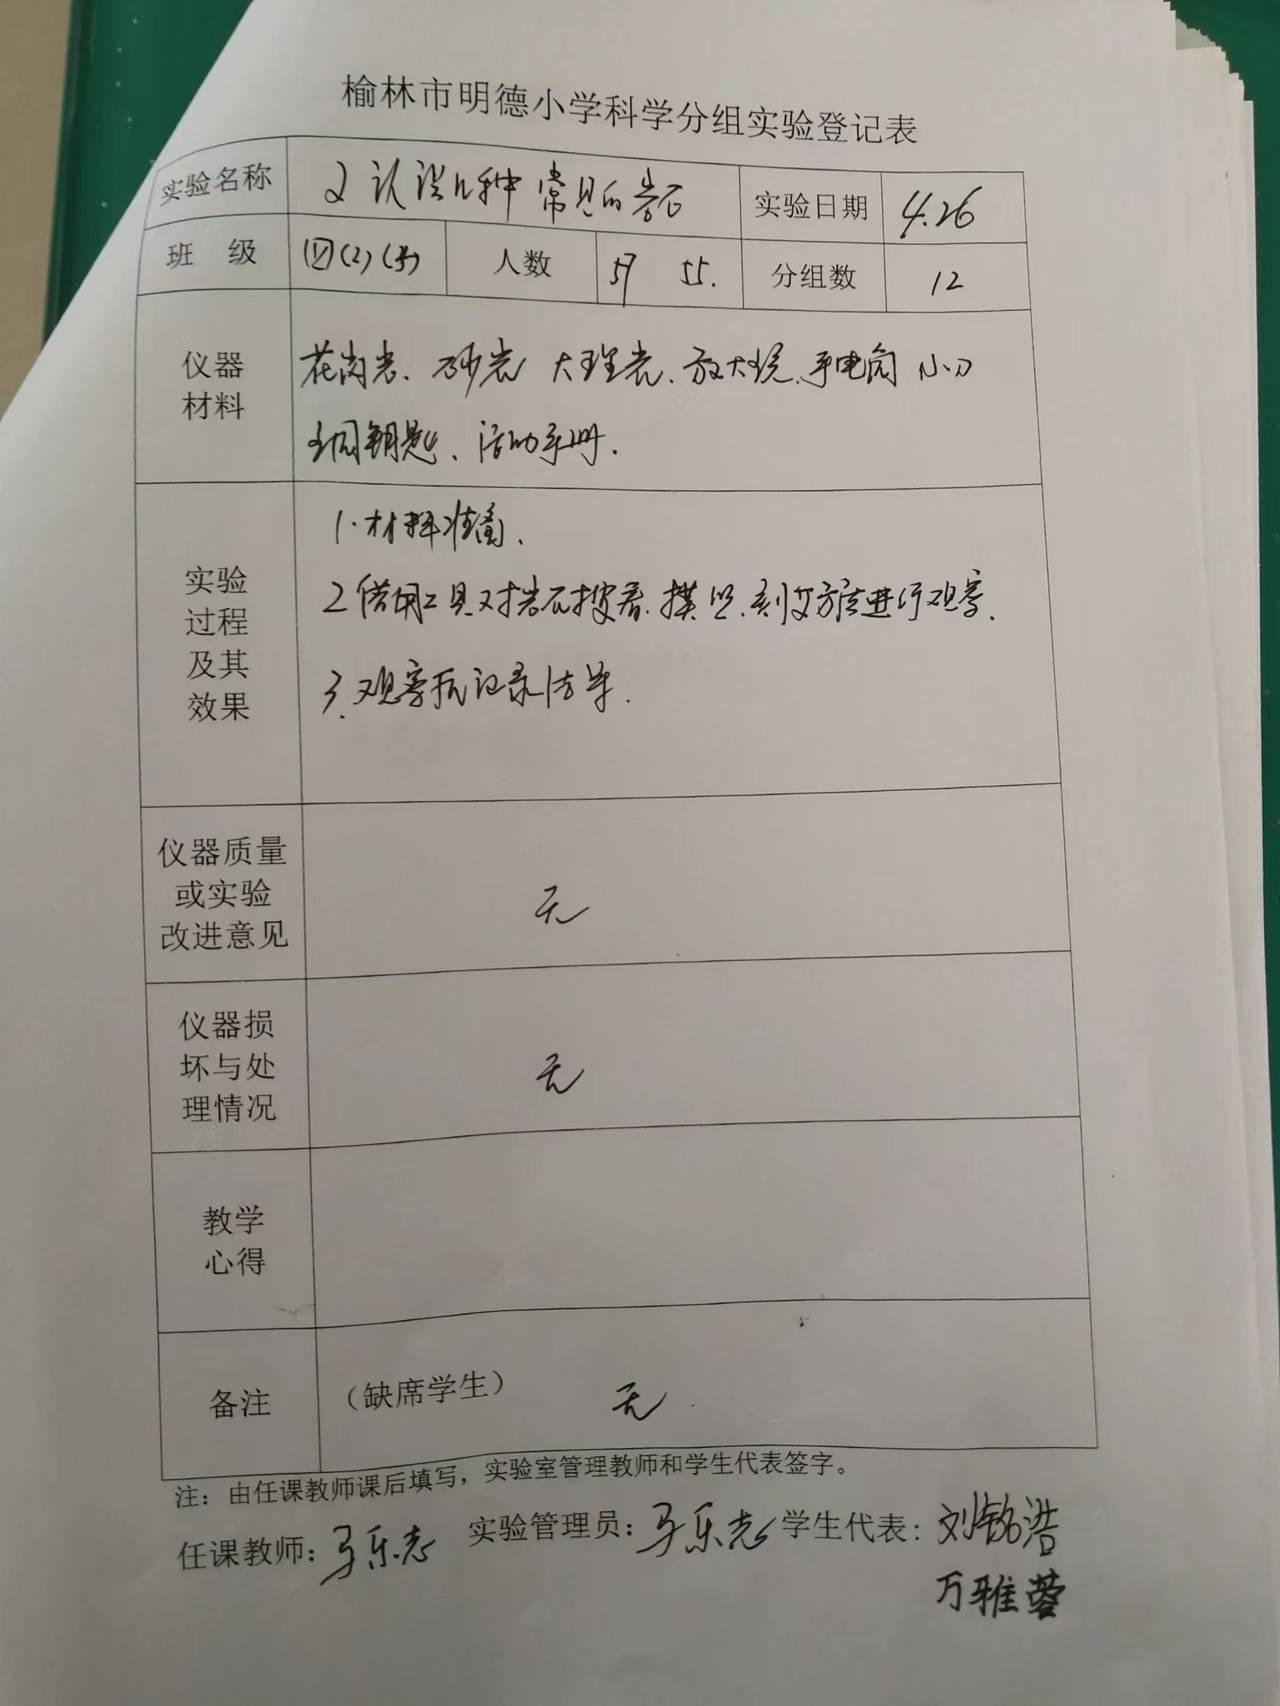 榆林市明德小学科学分组实验登记表
实验名称 2 认识几种常见的岩石 实验日期 4.26
班 级 四(2) 人数 59 55. 分组数 12
仪器材料 花岗岩、砂岩 大理岩、放大镜、手电筒 小刀
铜钥匙、活动手册.
实验过程及其效果 1.材料准备、
2借用工具对岩石按看、摸 刻 方法进行观察、
3.观察 记录
仪器质量或实验改进意见 无
仪器损坏与处理情况 无
教学心得
备注 (缺席学生) 无
注：由任课教师课后填写，实验室管理教师和学生代表签字。
任课教师：马乐志 实验管理员：马乐志 学生代表：刘铭浩
万雅蓉